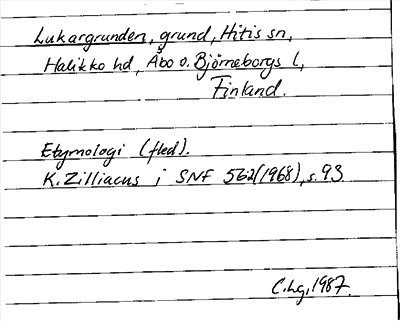 Lukargrunden, grund, Hitis sn,
Halikko hd, Åbo o. Björneborgs l,
Finland.
Etymologi (fled).
K. Zilliacus i SNF 562(1968), s. 93
C.Lg, 1987.